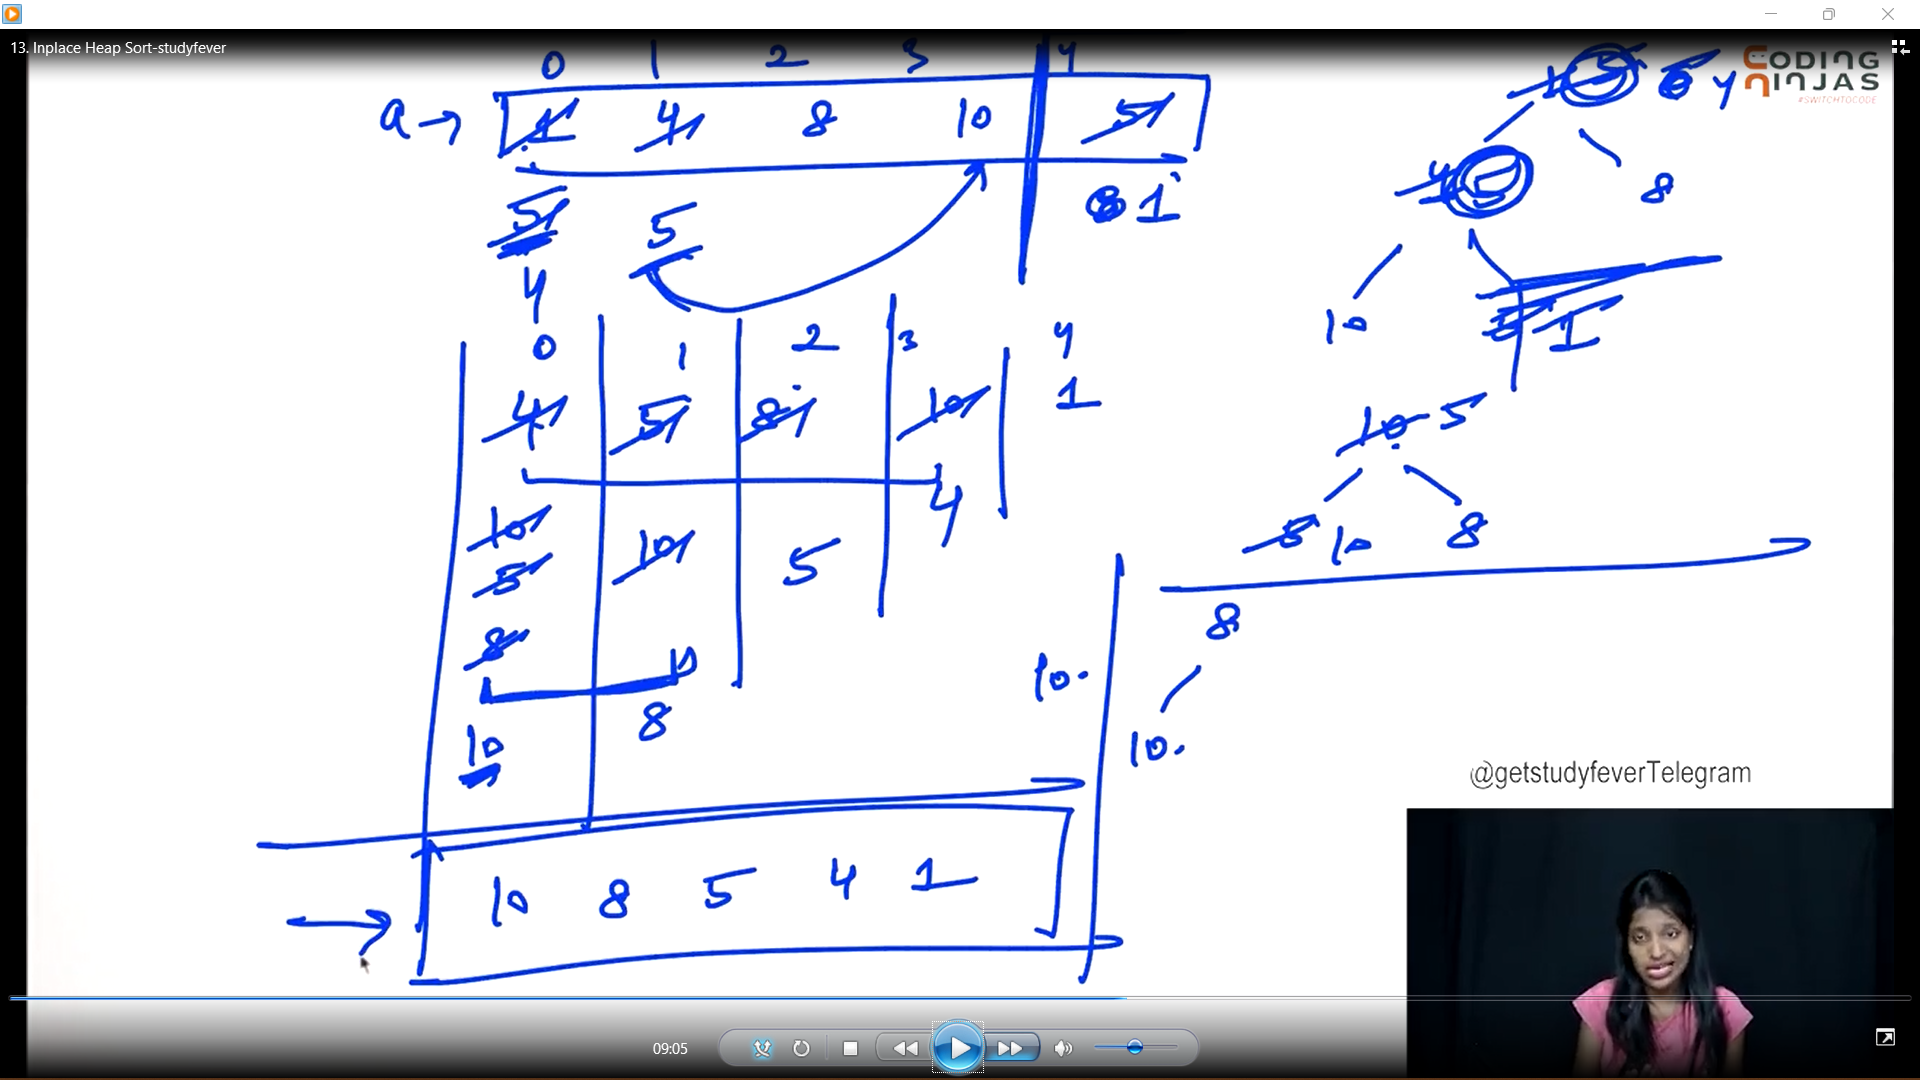 13. Inplace Heap Sort-studyfever
CODING
NINJAS
#SWITCHTOCODE
0 1 2 3 4
a → 1 4 8 10 5
5 5 8 1
4
0 1 2 3 4
4 5 8 10 1
10 10 5 4
5
8 10
10 8
10 8 5 4 1
1 5 5 4
4 5 8
10 1
10 5
8 10 8
8
10.
10.
@getstudyfeverTelegram
09:05